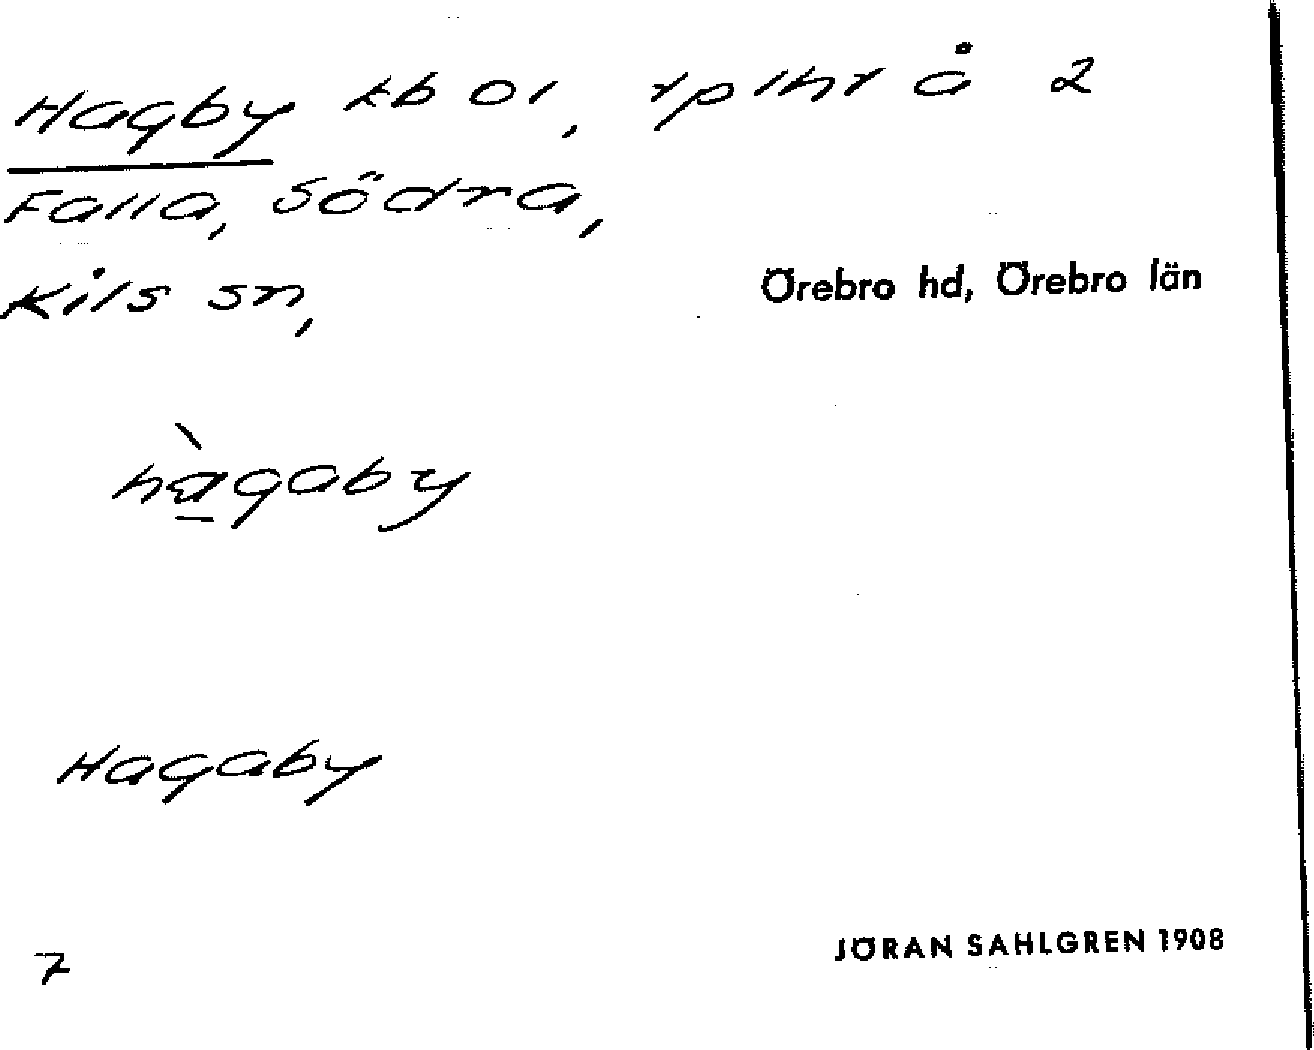 Hagby kb 01, rplhr å 2
Falla, Södra,
Kils sn,
Örebro hd, Örebro län
hàgaby
Hagaby
7
JÖRAN SAHLGREN 1908